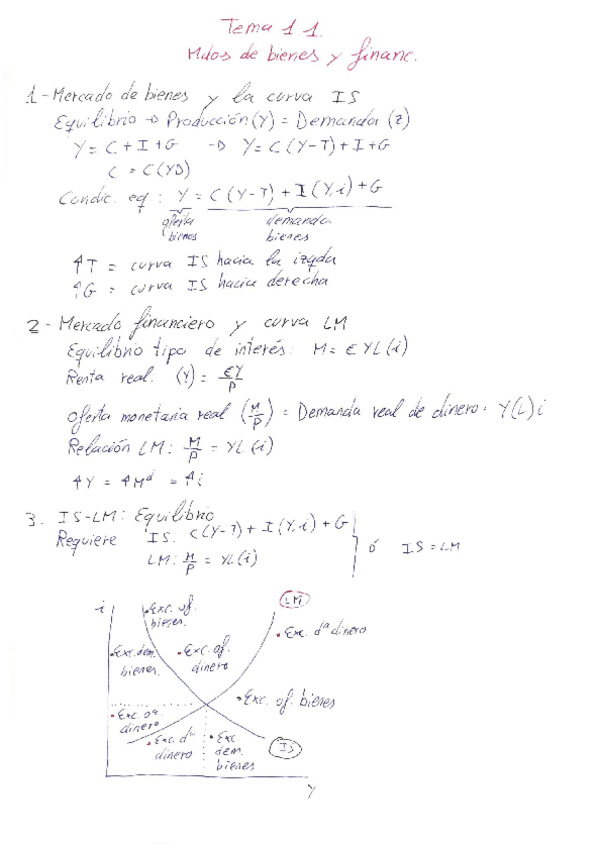 Tema 1.1.
Mdos de bienes y financ.
1 - Mercado de bienes y la curva IS
Equilibrio → Producción (Y) = Demanda (z)
Y = C + I + G → Y = C (Y-T) + I + G
C = C(YD)
Condic. eq : Y = C (Y-T) + I (Y,i) + G
oferta bienes
demanda bienes
↑T = curva IS hacia la izqda
↑G = curva IS hacia derecha
2 - Mercado financiero y curva LM
Equilibrio tipo de interés: M = € YL (i)
Renta real. (Y) = €Y/P
Oferta monetaria real (M/P) = Demanda real de dinero = Y(L)i
Relación LM: M/P = YL (i)
↑Y = ↑Mᵈ = ↑i
3. IS-LM: Equilibrio
Requiere IS. C(Y-T) + I(Y,i) + G
LM: M/P = YL(i)
ó IS = LM
i
Exc. of. bienes.
LM
Exc. dᵃ dinero
Exc. dem. bienes.
Exc. of. dinero
Exc. of. bienes
Exc. oª. dinero
Exc. dᵃ dinero
Exc dem. bienes
IS
Y